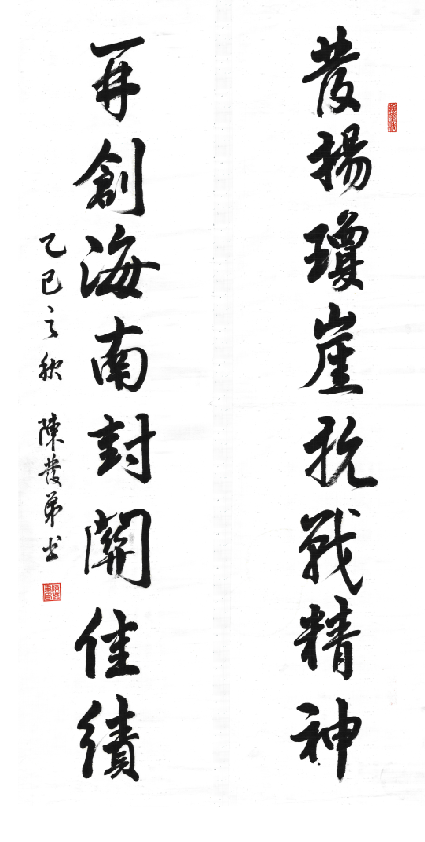 發揚瓊崖抗戰精神
再創海南封關佳績
乙巳之秋 陳發弟书